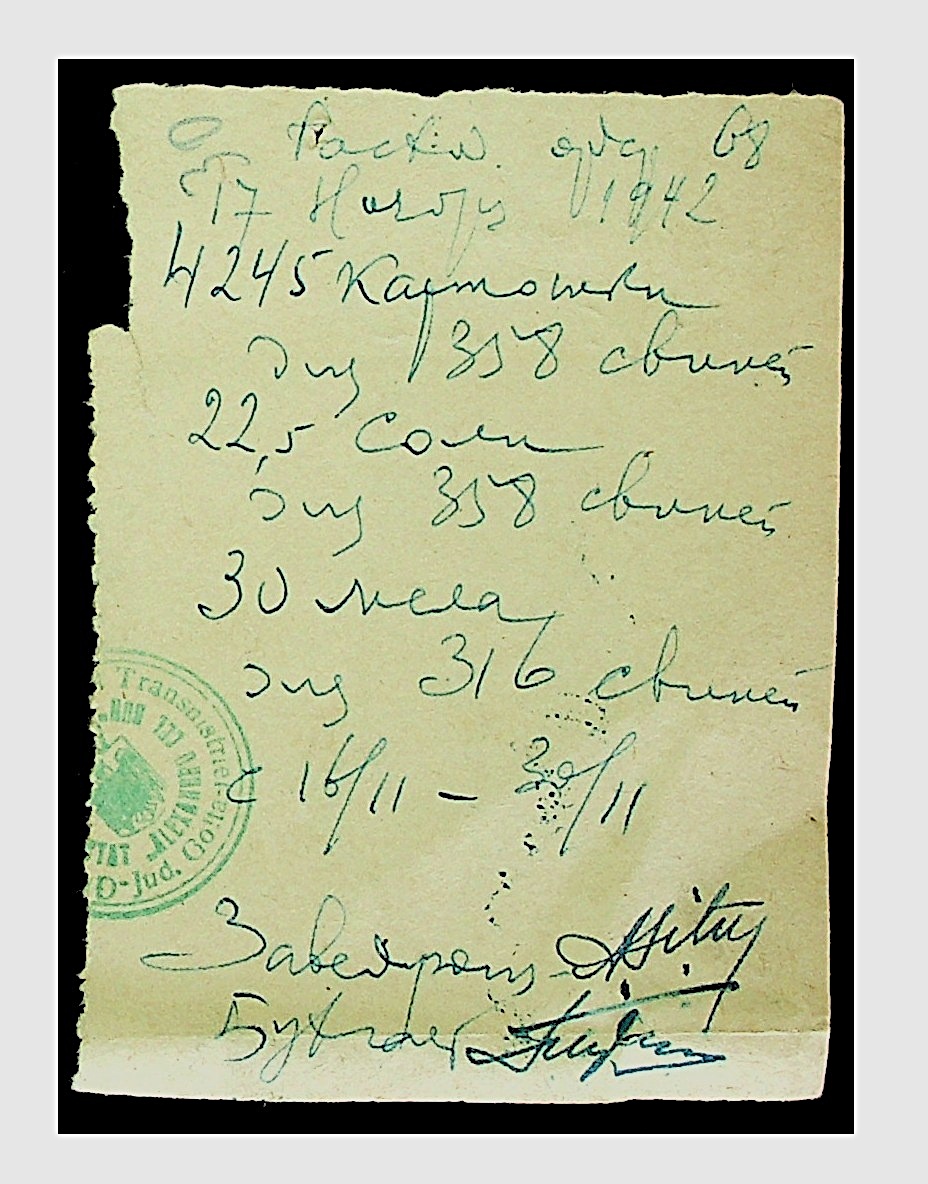 Расход. орд. 68
17 Ноября 1942
4245 Картошки
для 358 свиней
22,5 Соли
для 358 свиней
30 мела
для 316 свиней
с 16/11 – 30/11
Бухгалт
Transnistriei
ALEXANDR III
Jud. Golta